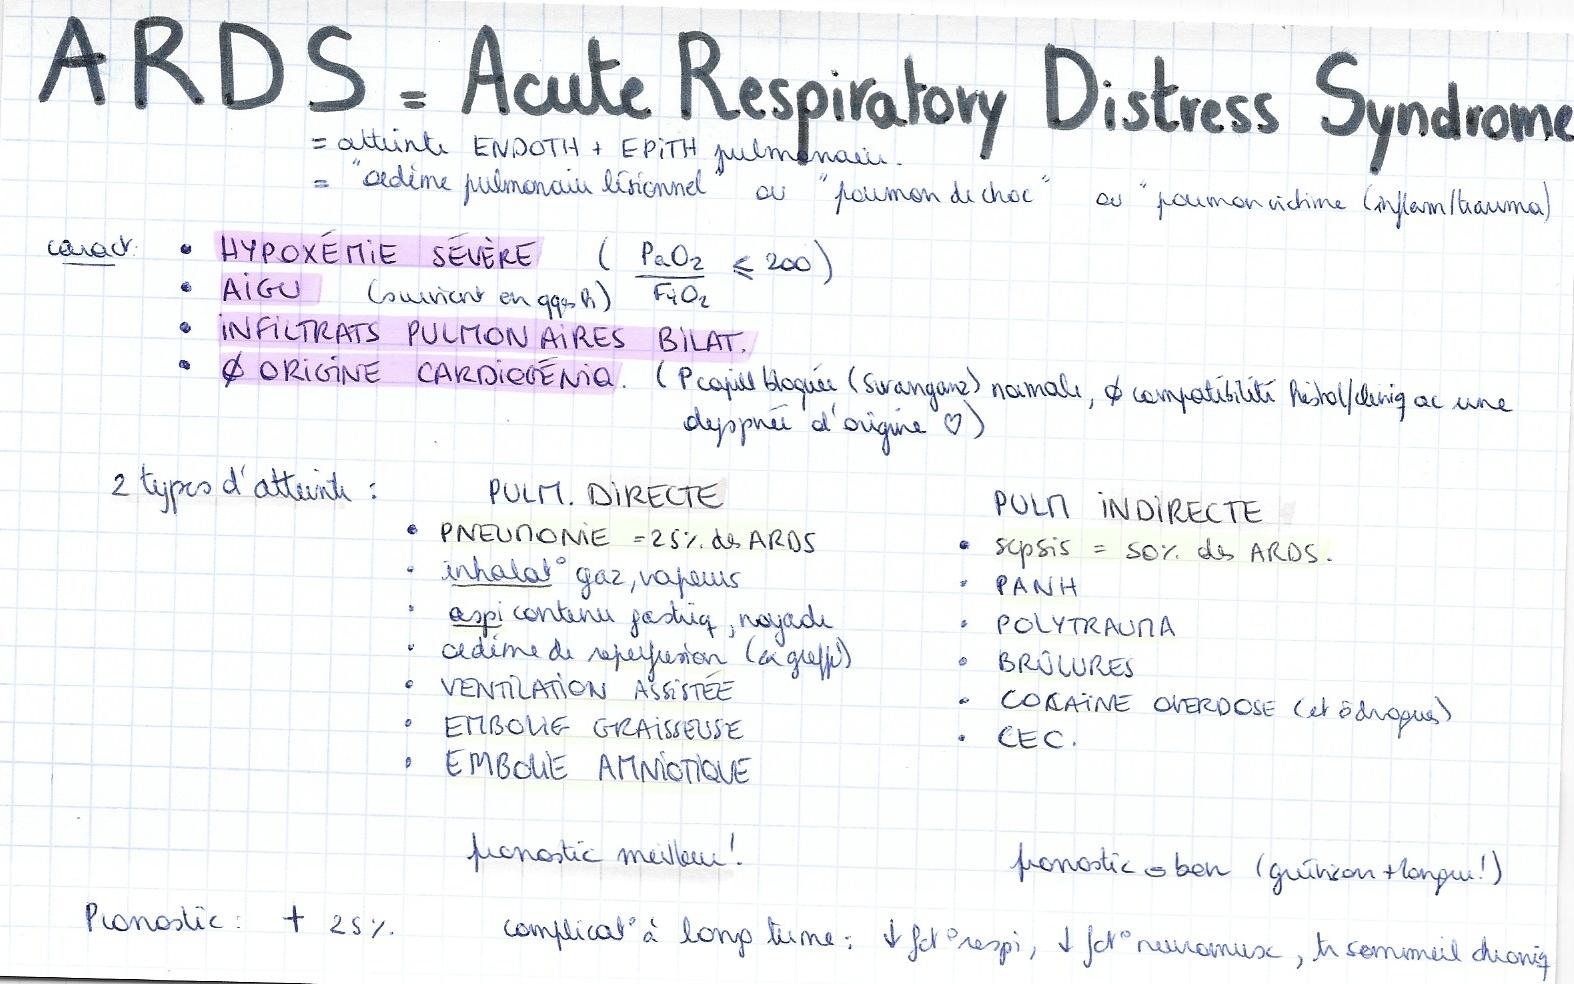 ARDS = Acute Respiratory Distress Syndrome
= atteinte ENDOTH + EPITH pulmonaire.
= "œdème pulmonaire lésionnel" ou "poumon de choc" ou "poumon victime (inflam/trauma)
caract:
• HYPOXÉMIE SÉVÈRE ( PaO2 / FiO2 ⩽ 200 )
• AIGU (survient en qqes h)
• INFILTRATS PULMONAIRES BILAT.
• Ø ORIGINE CARDIOGÉNIQ. (Pcapill bloquée (Swanganz) normale, Ø compatibilité histol/cliniq ac une
dyspnée d'origine ♡)
2 types d'atteinte :
PULM. DIRECTE
• PNEUMONIE = 25% des ARDS
• inhalat° gaz, vapeurs
• aspi contenu gastriq, noyade
• œdème de reperfusion (ex greffe)
• VENTILATION ASSISTÉE
• EMBOLIE GRAISSEUSE
• EMBOLIE AMNIOTIQUE
pronostic meilleur!
PULM INDIRECTE
• sepsis = 50% des ARDS.
• PANH
• POLYTRAUMA
• BRÛLURES
• COKAÏNE OVERDOSE (et drogues)
• CEC.
pronostic bon (guérison + longue!)
Pronostic : + 25%. complicat° à long terme : ↓ fct° respi, ↓ fct° neuromusc, tr sommeil chroniq